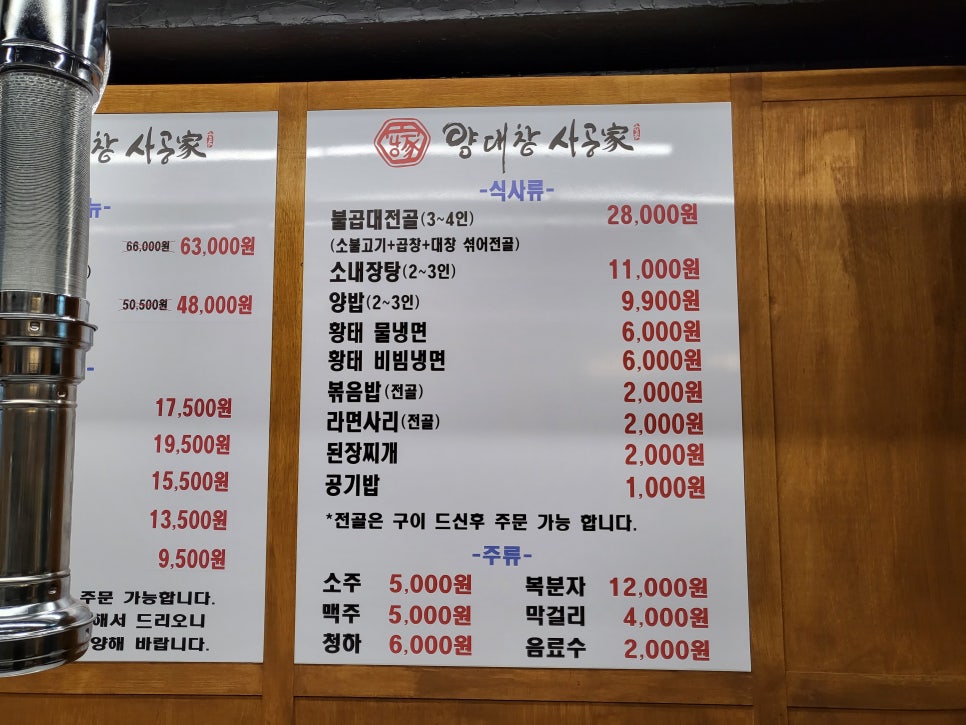 창 사공家
뉴-
66,000원 63,000원
)
50,500원 48,000원
-
17,500원
19,500원
15,500원
13,500원
9,500원
주문 가능합니다.
해서 드리오니
양해 바랍니다.
양대창 사공家
-식사류-
불곱대전골(3~4인) 28,000원
(소불고기+곱창+대창 섞어전골)
소내장탕(2~3인) 11,000원
양밥(2~3인) 9,900원
황태 물냉면 6,000원
황태 비빔냉면 6,000원
볶음밥(전골) 2,000원
라면사리(전골) 2,000원
된장찌개 2,000원
공기밥 1,000원
*전골은 구이 드신후 주문 가능 합니다.
-주류-
소주 5,000원 복분자 12,000원
맥주 5,000원 막걸리 4,000원
청하 6,000원 음료수 2,000원